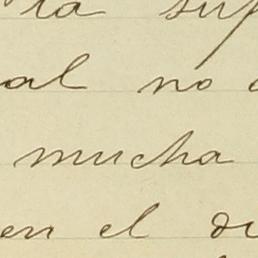 ta sup
al no
mucha
en el